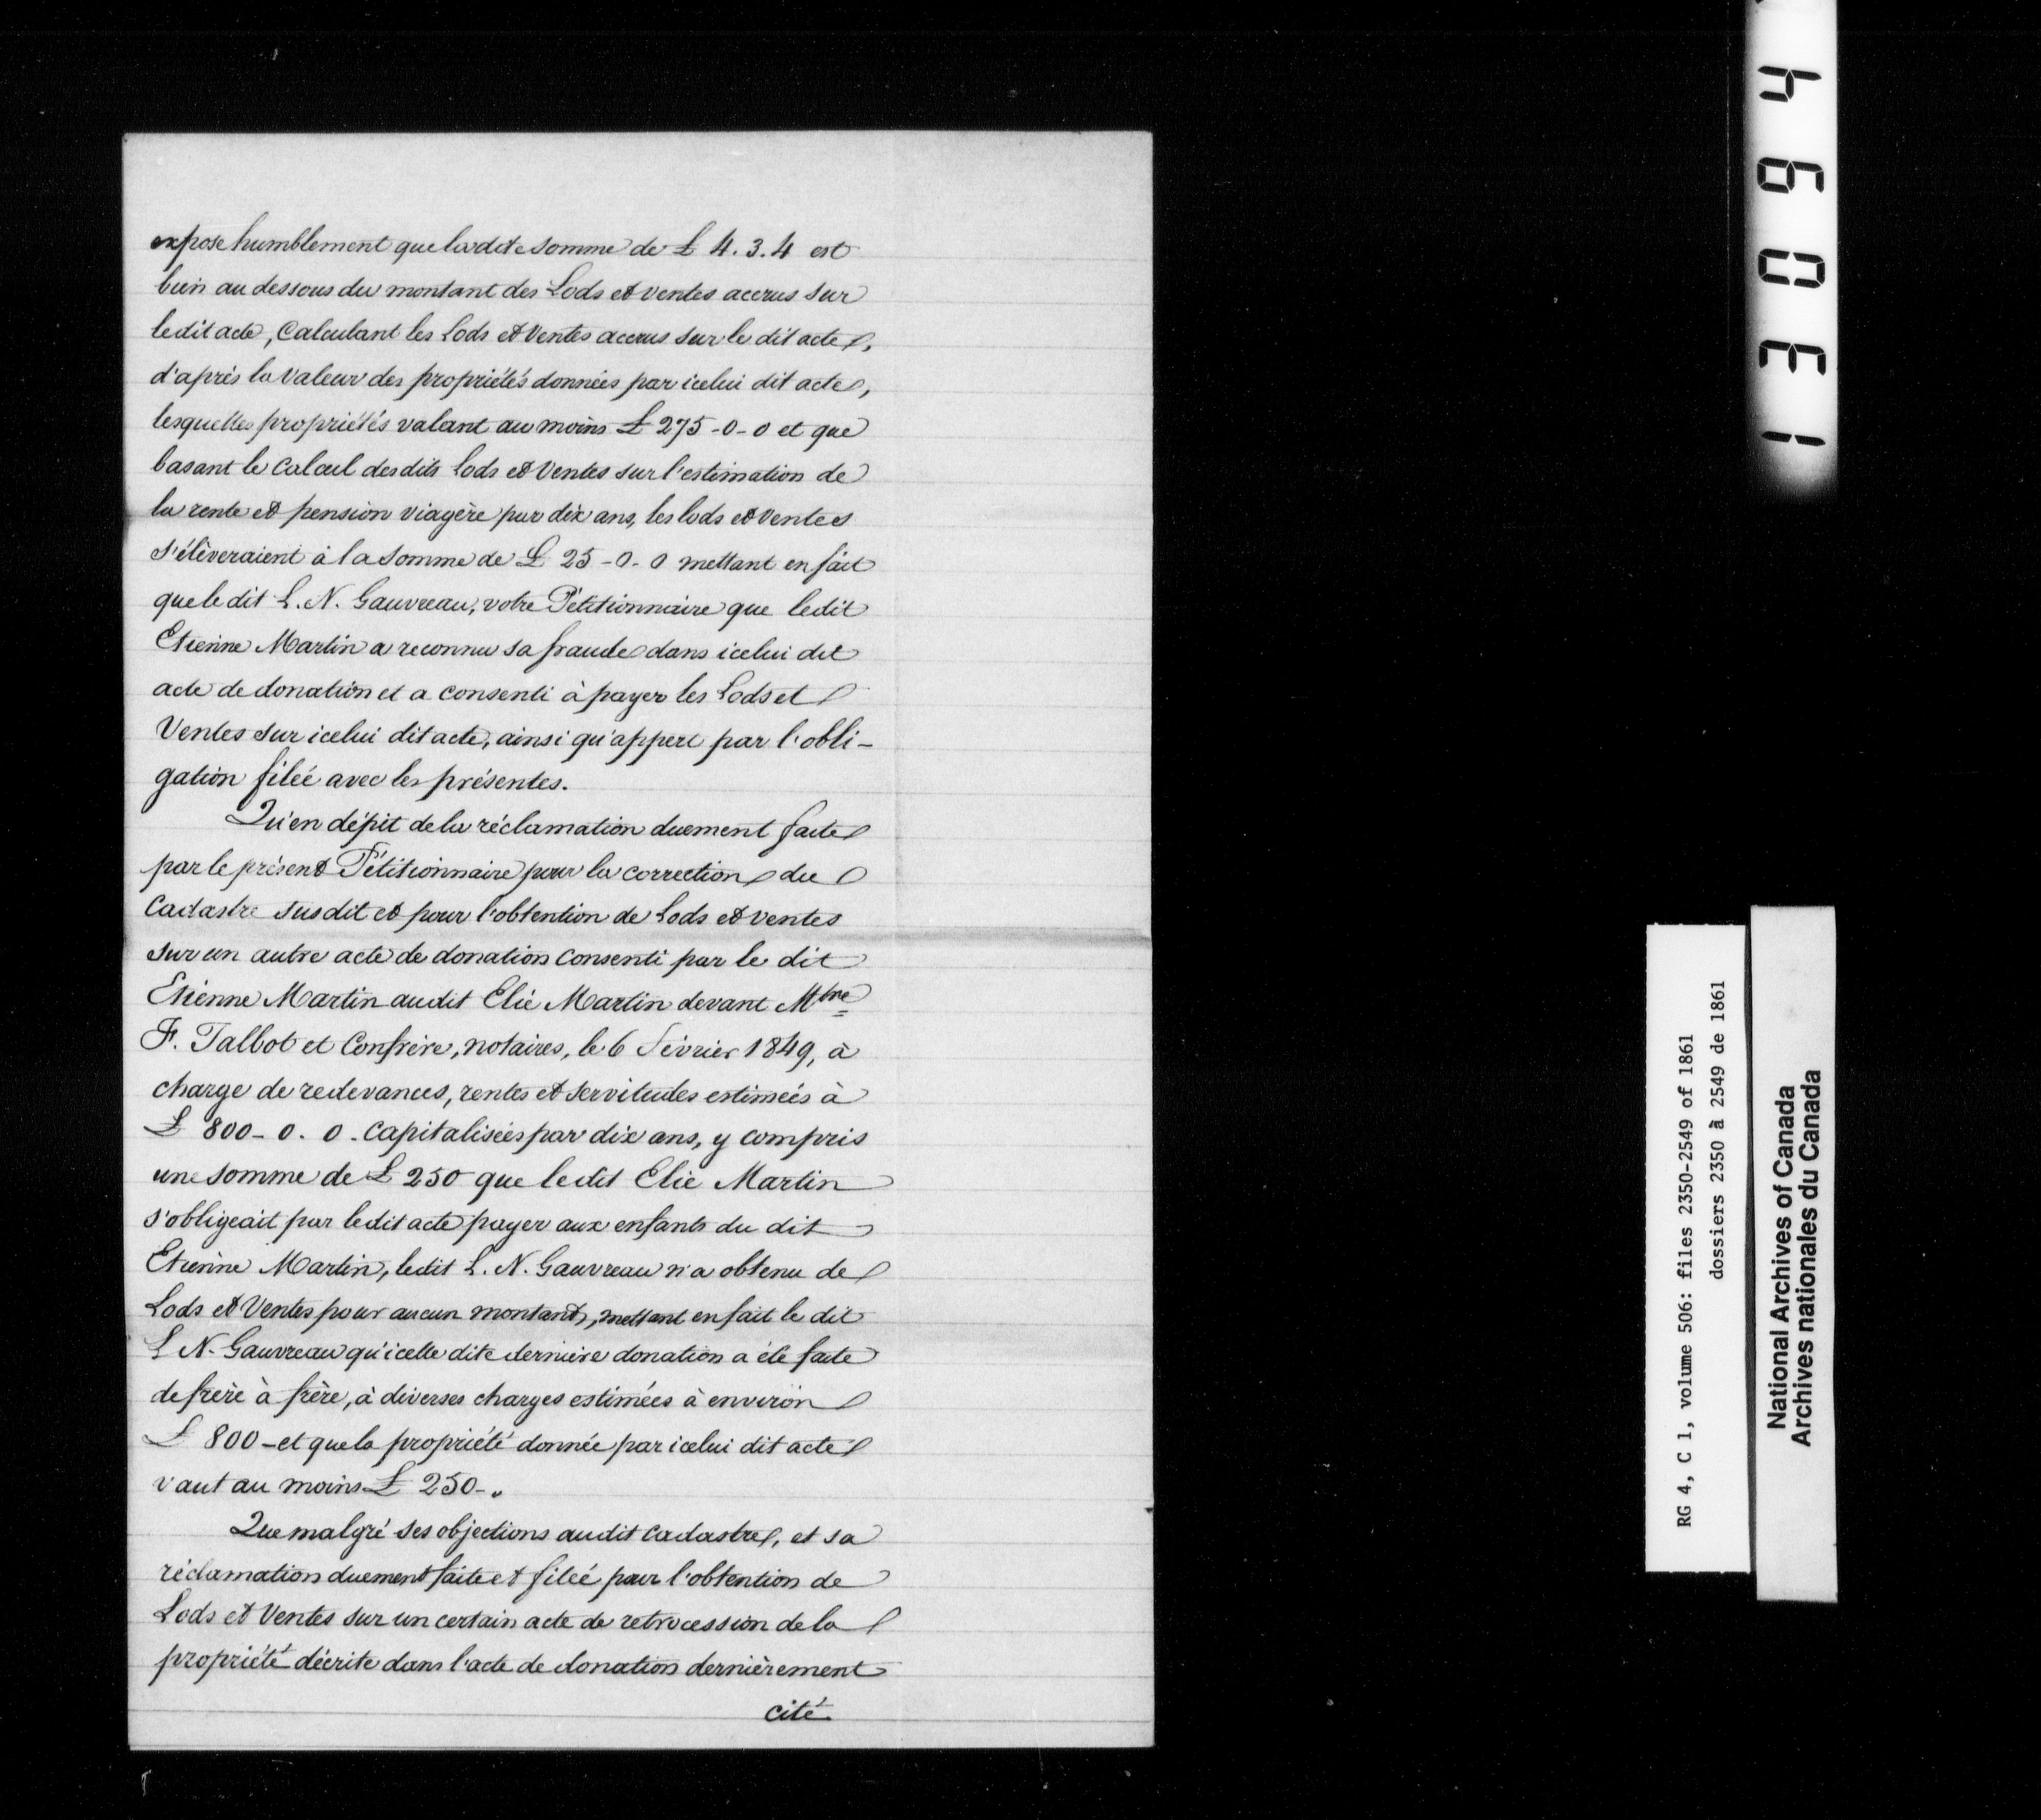 expose humblement que ladite somme de £ 4.3.4 est
bien au dessous du montant des Lods et ventes accrus sur
le dit acte, Calculant les Lods et Ventes accrus sur le dit acte,
d'après la Valeur des propriétés données par icelui dit acte,
lesquelles propriétés valant au moins £ 275-0-0 et que
basant le Calcul desdits Lods et Ventes sur l'estimation de
la rente et pension viagère par dix ans, les lods et Ventes
s'élèveraient à la somme de £ 25-0-0 mettant en fait
que le dit L. N. Gauvreau, votre Pétitionnaire que ledit
Etienne Martin a reconnu sa fraude dans icelui dit
acte de donation et a consenti à payer les Lods et
Ventes sur icelui dit acte, ainsi qu'appert par l'obli-
gation filée avec les présentes.
Qu'en dépit de la réclamation duement faite
par le présent Pétitionnaire pour la correction du
Cadastre susdit et pour l'obtention de Lods et ventes
sur un autre acte de donation consenti par le dit
Etienne Martin audit Elie Martin devant Mtre
F. Talbot et Confrère, notaires, le 6 Février 1849, à
charge de redevances, rentes et servitudes estimées à
£ 800-0.0-Capitalisées par dix ans, y compris
une somme de £ 250 que le dit Elie Martin
s'obligeait par ledit acte payer aux enfants du dit
Etienne Martin, ledit L. N. Gauvreau n'a obtenu de
Lods et Ventes pour aucun montant, mettant en fait le dit
L N. Gauvreau qu'icelle dite dernière donation a été faite
de frère à frère, à diverses charges estimées à environ
£ 800-et que la propriété donnée par icelui dit acte
vaut au moins £ 250-.
Que malgré ses objections audit cadastre, et sa
réclamation duement faite et filée pour l'obtention de
Lods et Ventes sur un certain acte de retrocession de la
propriété décrite dans l'acte de donation dernièrement
cité
13094
RG 4, C 1, volume 506: files 2350-2549 of 1861
dossiers 2350 à 2549 de 1861
National Archives of Canada
Archives nationales du Canada